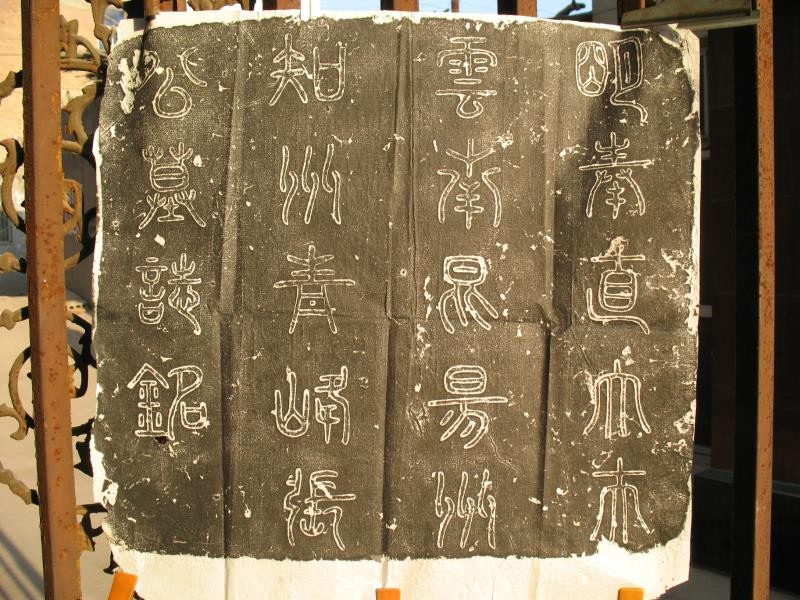 明奉直大夫
雲南昆昜州
知州青峰張
公墓誌銘